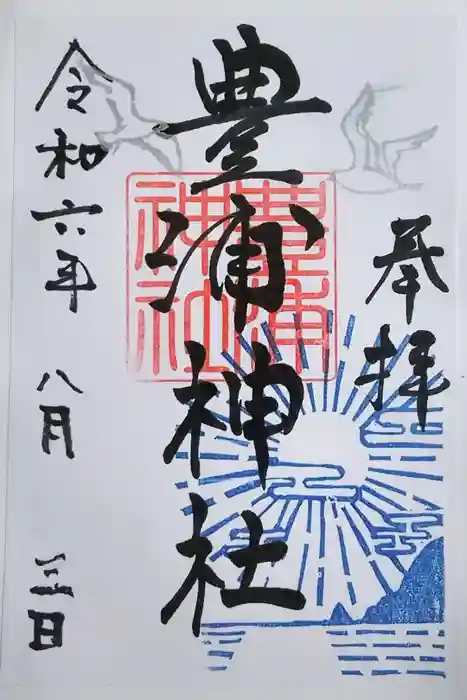 奉拝
豊浦神社
豊浦
神社
令和六年 八月 三日